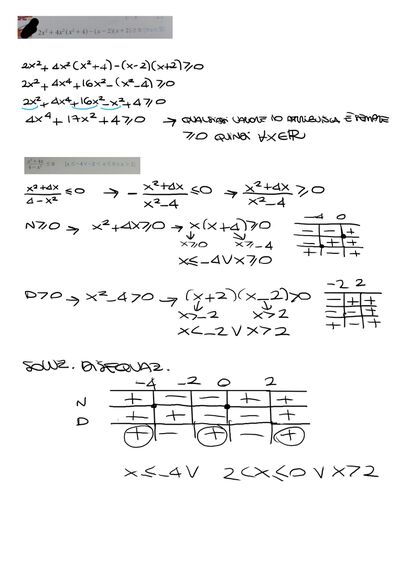 2x² + 4x²(x²+4) - (x-2)(x+2) ≥ 0
2x² + 4x²(x²+4) - (x-2)(x+2) ≥ 0
2x² + 4x⁴ + 16x² - (x²-4) ≥ 0
2x² + 4x⁴ + 16x² - x² + 4 ≥ 0
4x⁴ + 17x² + 4 ≥ 0 → QUALSIASI VALORE IO ATTRIBUISCA È SEMPRE
≥ 0 QUINDI ∀x∈ℝ
(x²+4x)/(4-x²) ≤ 0 → -(x²+4x)/(x²-4) ≤ 0 → (x²+4x)/(x²-4) ≥ 0
N≥0 → x²+4x≥0 → x(x+4)≥0
-4 0
x≥0 x≥-4
- - +
- + +
+ - +
x≤-4 ∨ x≥0
D>0 → x²-4>0 → (x+2)(x-2)>0
-2 2
x>-2 x>2
- + +
- - +
+ - +
x<-2 ∨ x>2
SOLUZ. DISEQUAZ.
-4 -2 0 2
N + - - + +
D + + - - +
+ - + - +
x≤-4 ∨ 2<x≤0 ∨ x>2